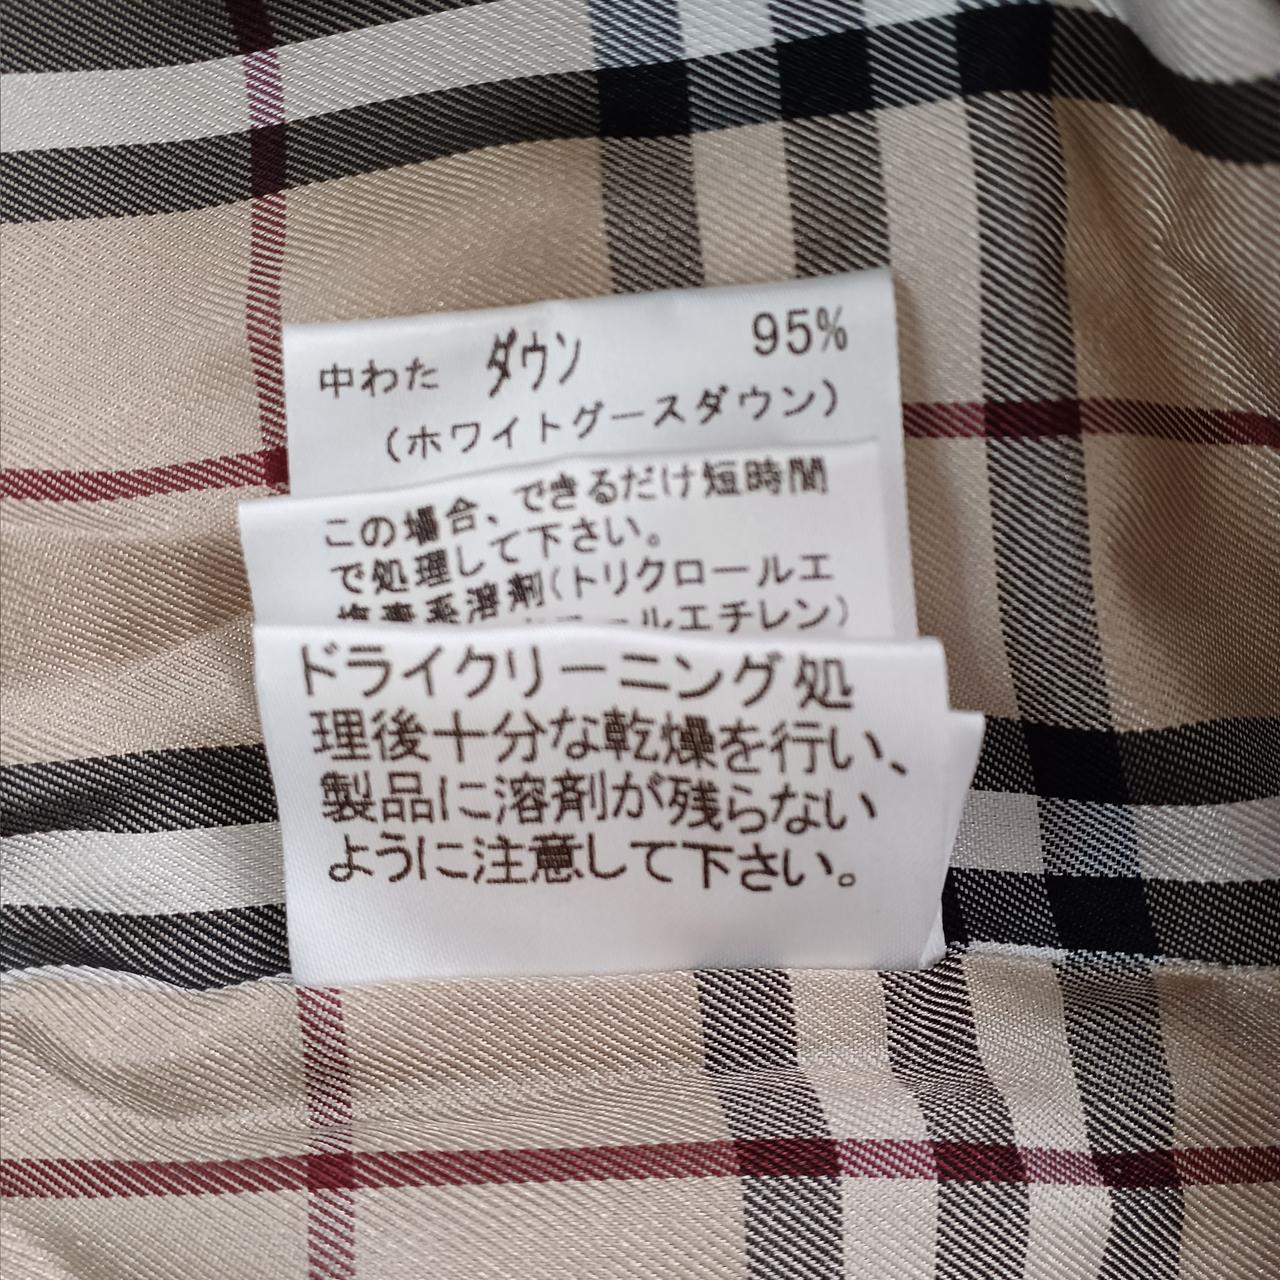 中わた ダウン 95%
(ホワイトグースダウン)
この場合、できるだけ短時間
で処理して下さい。
塩素系溶剤(トリクロールエ
ールエチレン)
ドライクリーニング処
理後十分な乾燥を行い、
製品に溶剤が残らない
ように注意して下さい。